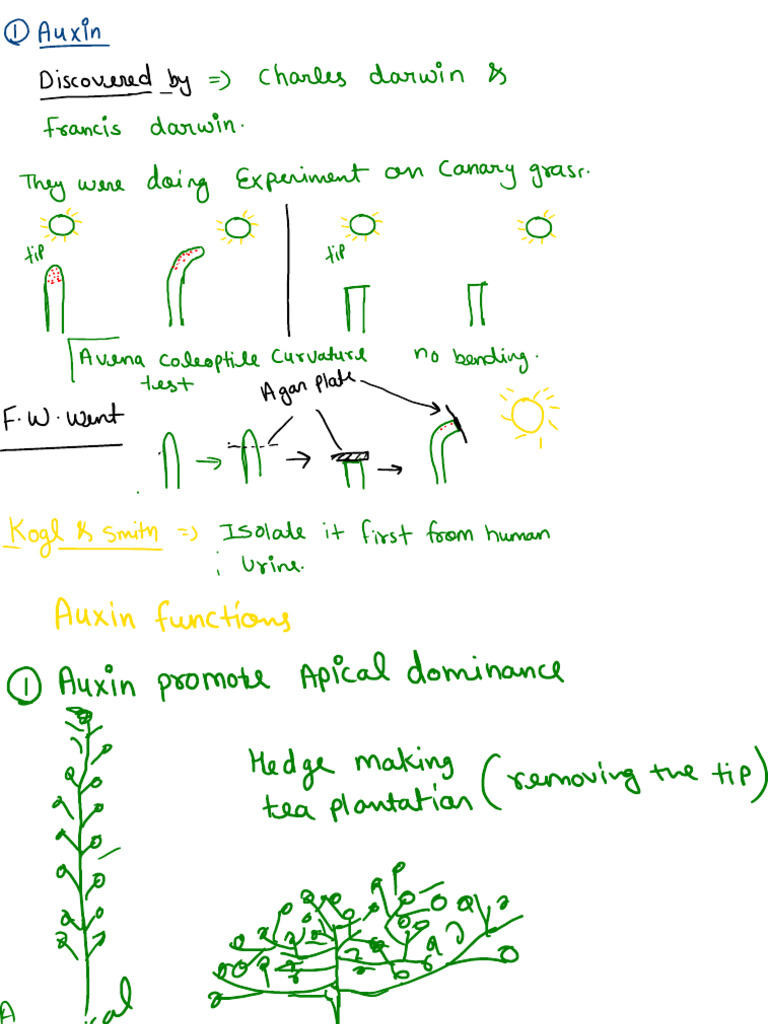 ① Auxin
Discovered by => Charles darwin &
Francis darwin.
They were doing Experiment on Canary grass.
tip tip
Avena coleoptile Curvature no bending.
test
Agar plate
F.W. Went
Kogl & Smith => Isolate it first from human
Urine.
Auxin functions
① Auxin promote Apical dominance
Hedge making
tea plantation (removing the tip)
A
ical